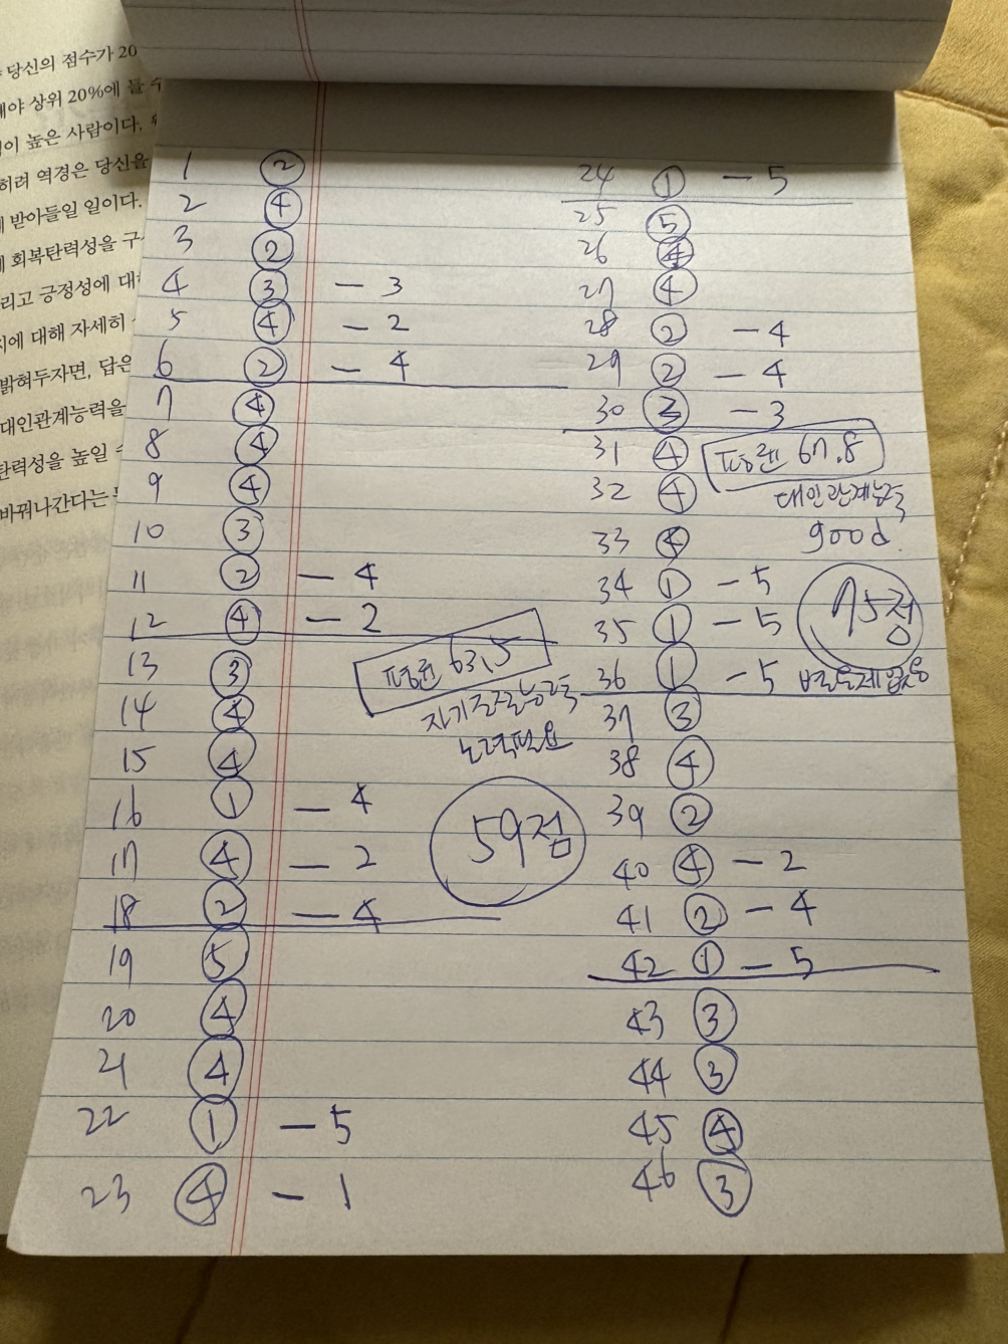 당신의 점수가 20
해야 상위 20%에 들
이 높은 사람이다.
히려 역경은 당신을
받아들일 일이다.
회복탄력성을 구
리고 긍정성에 대
에 대해 자세히
밝혀두자면, 답은
대인관계능력을
탄력성을 높일
바꿔나간다는
1 ②
2 ④
3 ②
4 ③ - 3
5 ④ - 2
6 ② - 4
7 ④
8 ④
9 ④
10 ③
11 ② - 4
12 ④ - 2
13 ③
14 ④
15 ④
16 ① - 4
17 ④ - 2
18 ② - 4
19 ⑤
20 ④
21 ④
22 ① - 5
23 ④ - 1
평균 63.5
자기조절능력
노력필요
59점
24 ① - 5
25 ⑤
26 ④
27 ④
28 ② - 4
29 ② - 4
30 ③ - 3
31 ④
32 ④
33 ④
34 ① - 5
35 ① - 5
36 ① - 5
37 ③
38 ④
39 ②
40 ④ - 2
41 ② - 4
42 ① - 5
43 ③
44 ③
45 ④
46 ③
평균 67.8
대인관계능력
good.
75점
별문제없음